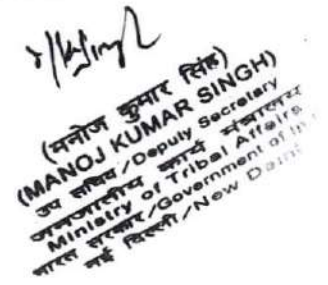 (मनोज कुमार सिंह)
(MANOJ KUMAR SINGH)
उप सचिव/Deputy Secretary
जनजातीय कार्य मंत्रालय
Ministry of Tribal Affairs
भारत सरकार/Government of
नई दिल्ली/New Delhi